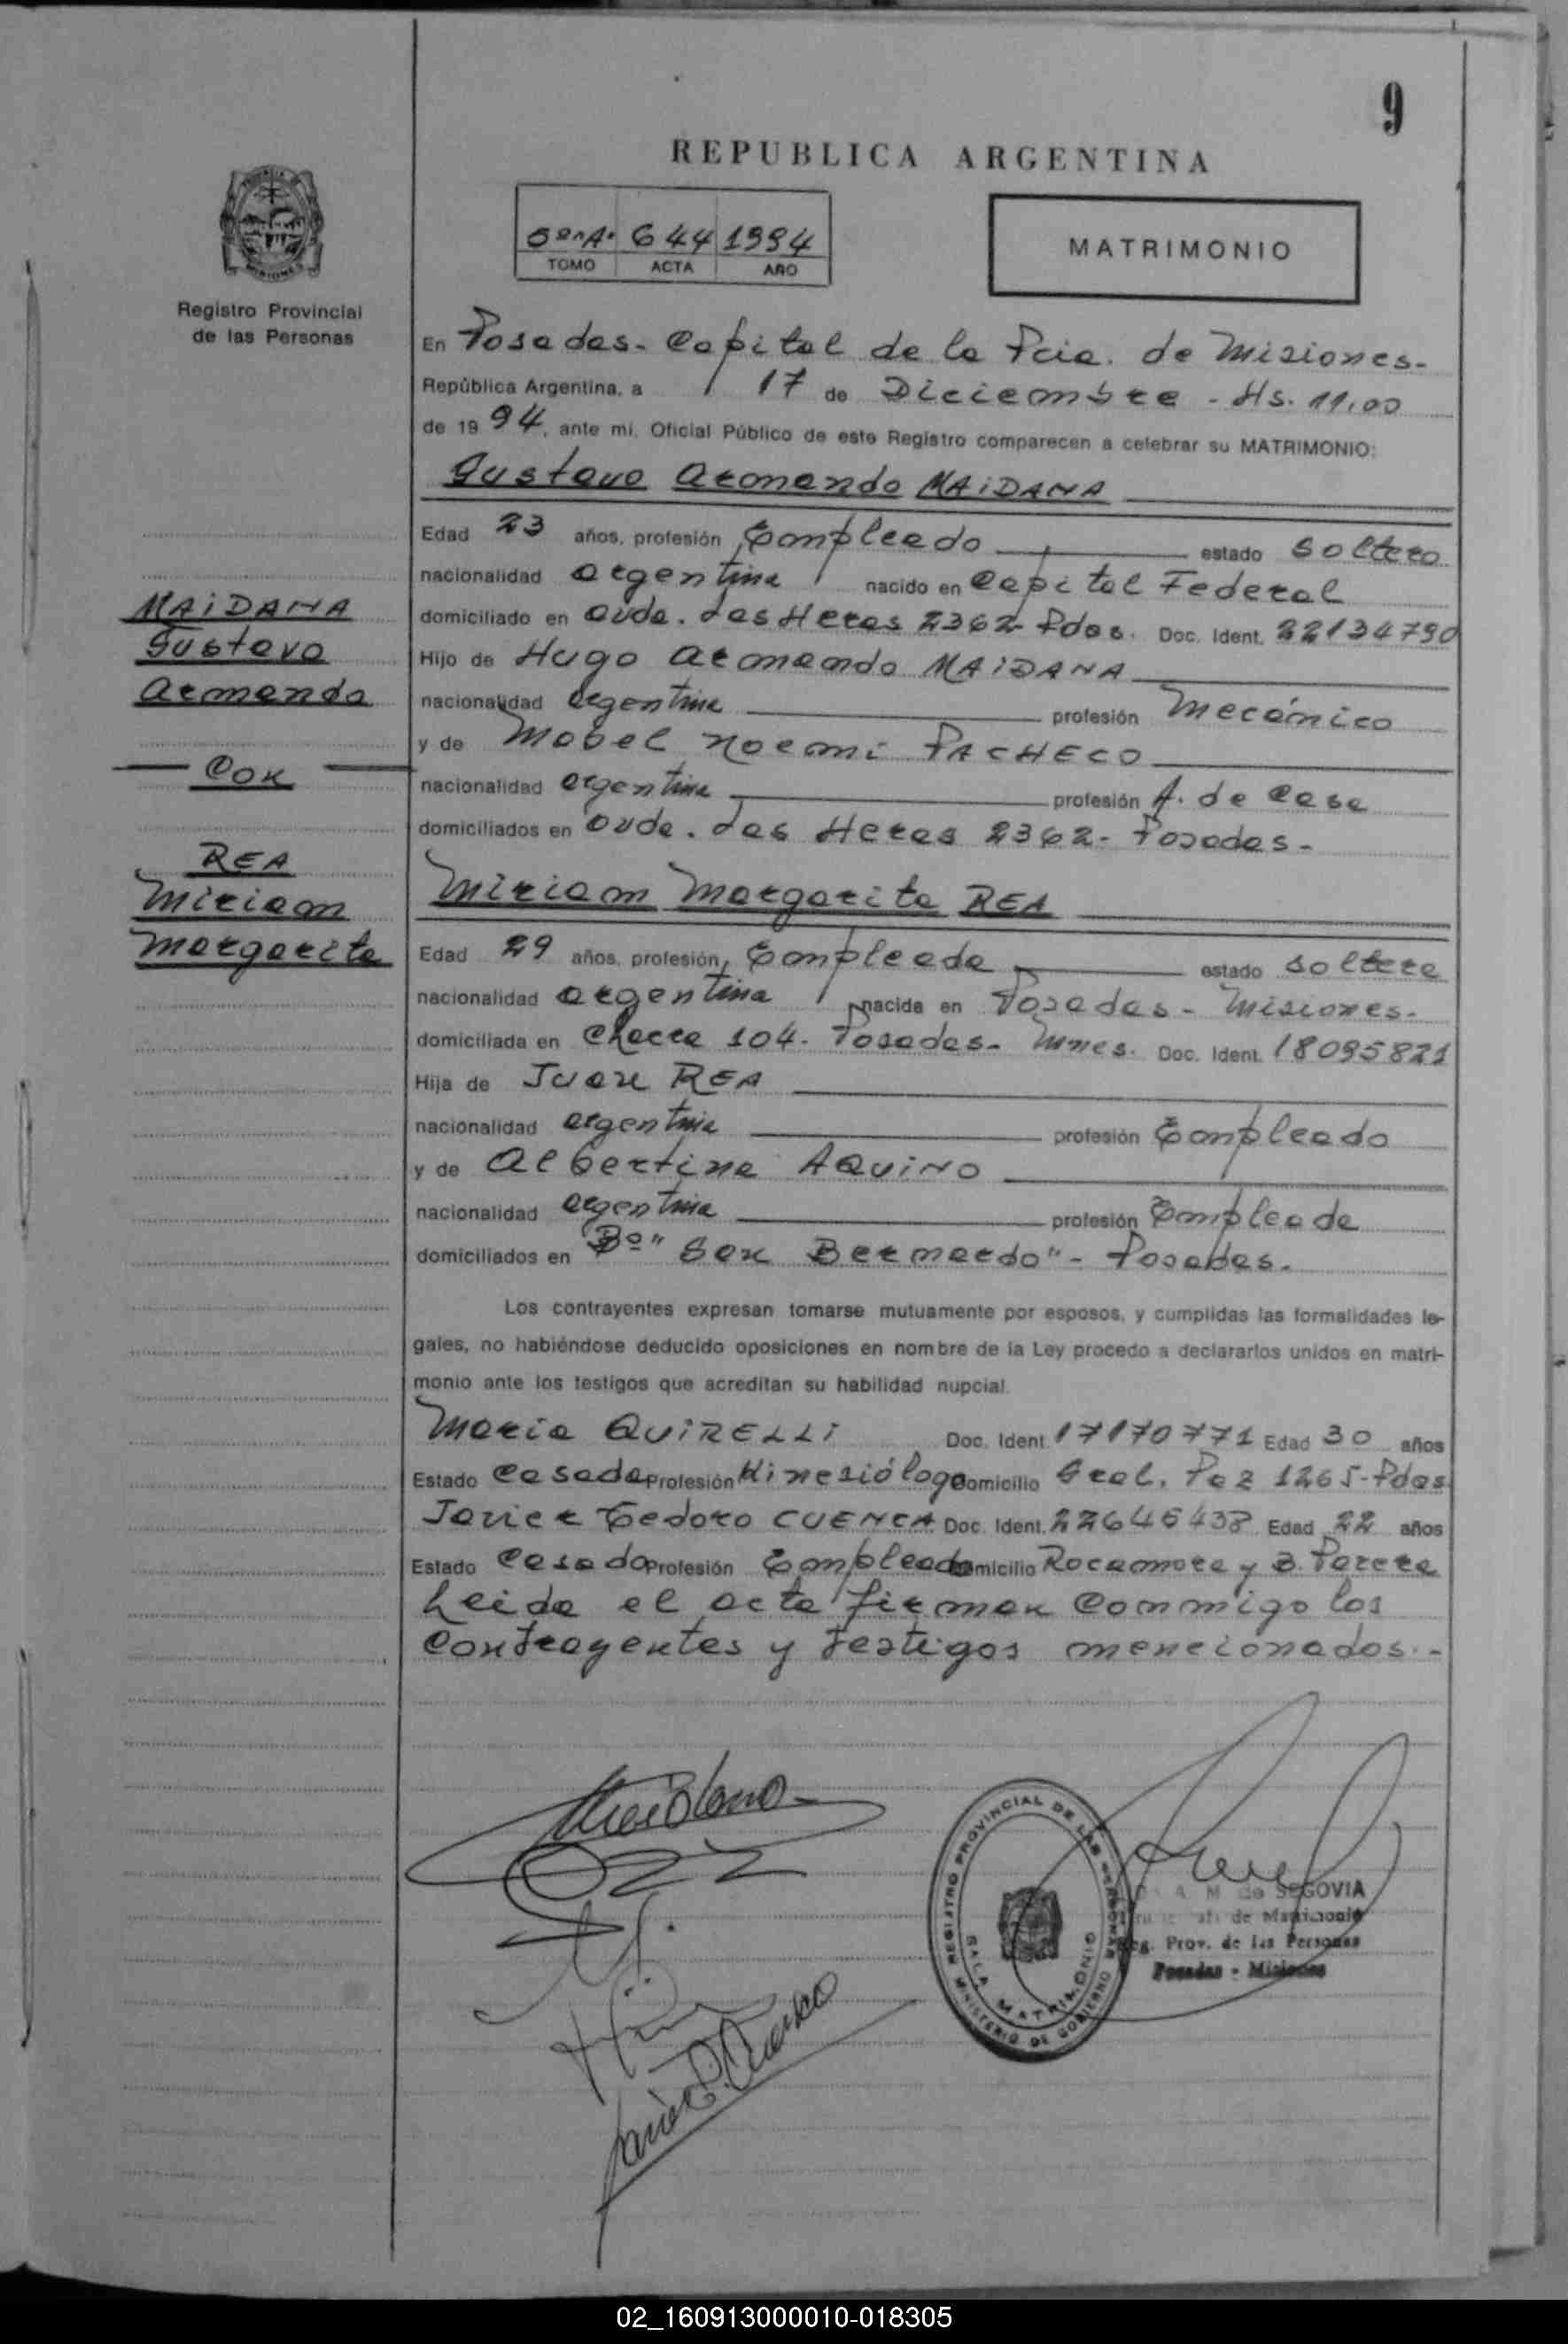 9
REPUBLICA ARGENTINA
5º"A" 644 1994
TOMO ACTA AÑO
MATRIMONIO
Registro Provincial
de las Personas
En Posadas- Capital de la Pcia. de Misiones-
República Argentina, a 17 de Diciembre - Hs. 11,00
de 19 94, ante mí, Oficial Público de este Registro comparecen a celebrar su MATRIMONIO:
Gustavo Armando MAiDANA
Edad 23 años, profesión Empleado estado Soltero
nacionalidad argentina nacido en Capital Federal
domiciliado en Avda. Las Heras 2362- Pdas. Doc. Ident. 22134790
Hijo de Hugo Armando MAiDANA
nacionalidad argentina profesión Mecánico
y de Mabel Noemi PACHECO
nacionalidad argentina profesión A. de Casa
domiciliados en Avda. Las Heras 2362- Posadas-
MAiDANA
Gustavo
Armando
CON
REA
Miriam
Margarita
Miriam Margarita REA
Edad 29 años, profesión Empleada estado soltera
nacionalidad argentina nacida en Posadas- Misiones-
domiciliada en Chacra 104- Posadas- Mnes. Doc. Ident. 18095821
Hija de Juan REA
nacionalidad argentina profesión Empleado
y de Albertina AQUiNO
nacionalidad argentina profesión Empleada
domiciliados en Bº "San Bernardo"- Posadas.
Los contrayentes expresan tomarse mutuamente por esposos, y cumplidas las formalidades le-
gales, no habiéndose deducido oposiciones en nombre de la Ley procedo a declararlos unidos en matri-
monio ante los testigos que acreditan su habilidad nupcial.
Maria QUiRELLi Doc. Ident. 17170771 Edad 30 años
Estado Casada Profesión Kinesióloga Domicilio Gral. Paz 1265-Pdas
Javier Cedoro CUENCA Doc. Ident. 22646438 Edad 22 años
Estado Casado Profesión Empleado Domicilio Rocamora y B. Parera
Leida el acta firman conmigo los
Contrayentes y testigos mencionados.-
REGISTRO PROVINCIAL DE LAS PERSONAS
SALA MATRIMONIO
MINISTERIO DE GOBIERNO
A. M. de SEGOVIA
de Matrimonio
Reg. Prov. de las Personas
Posadas - Misiones
02_160913000010-018305